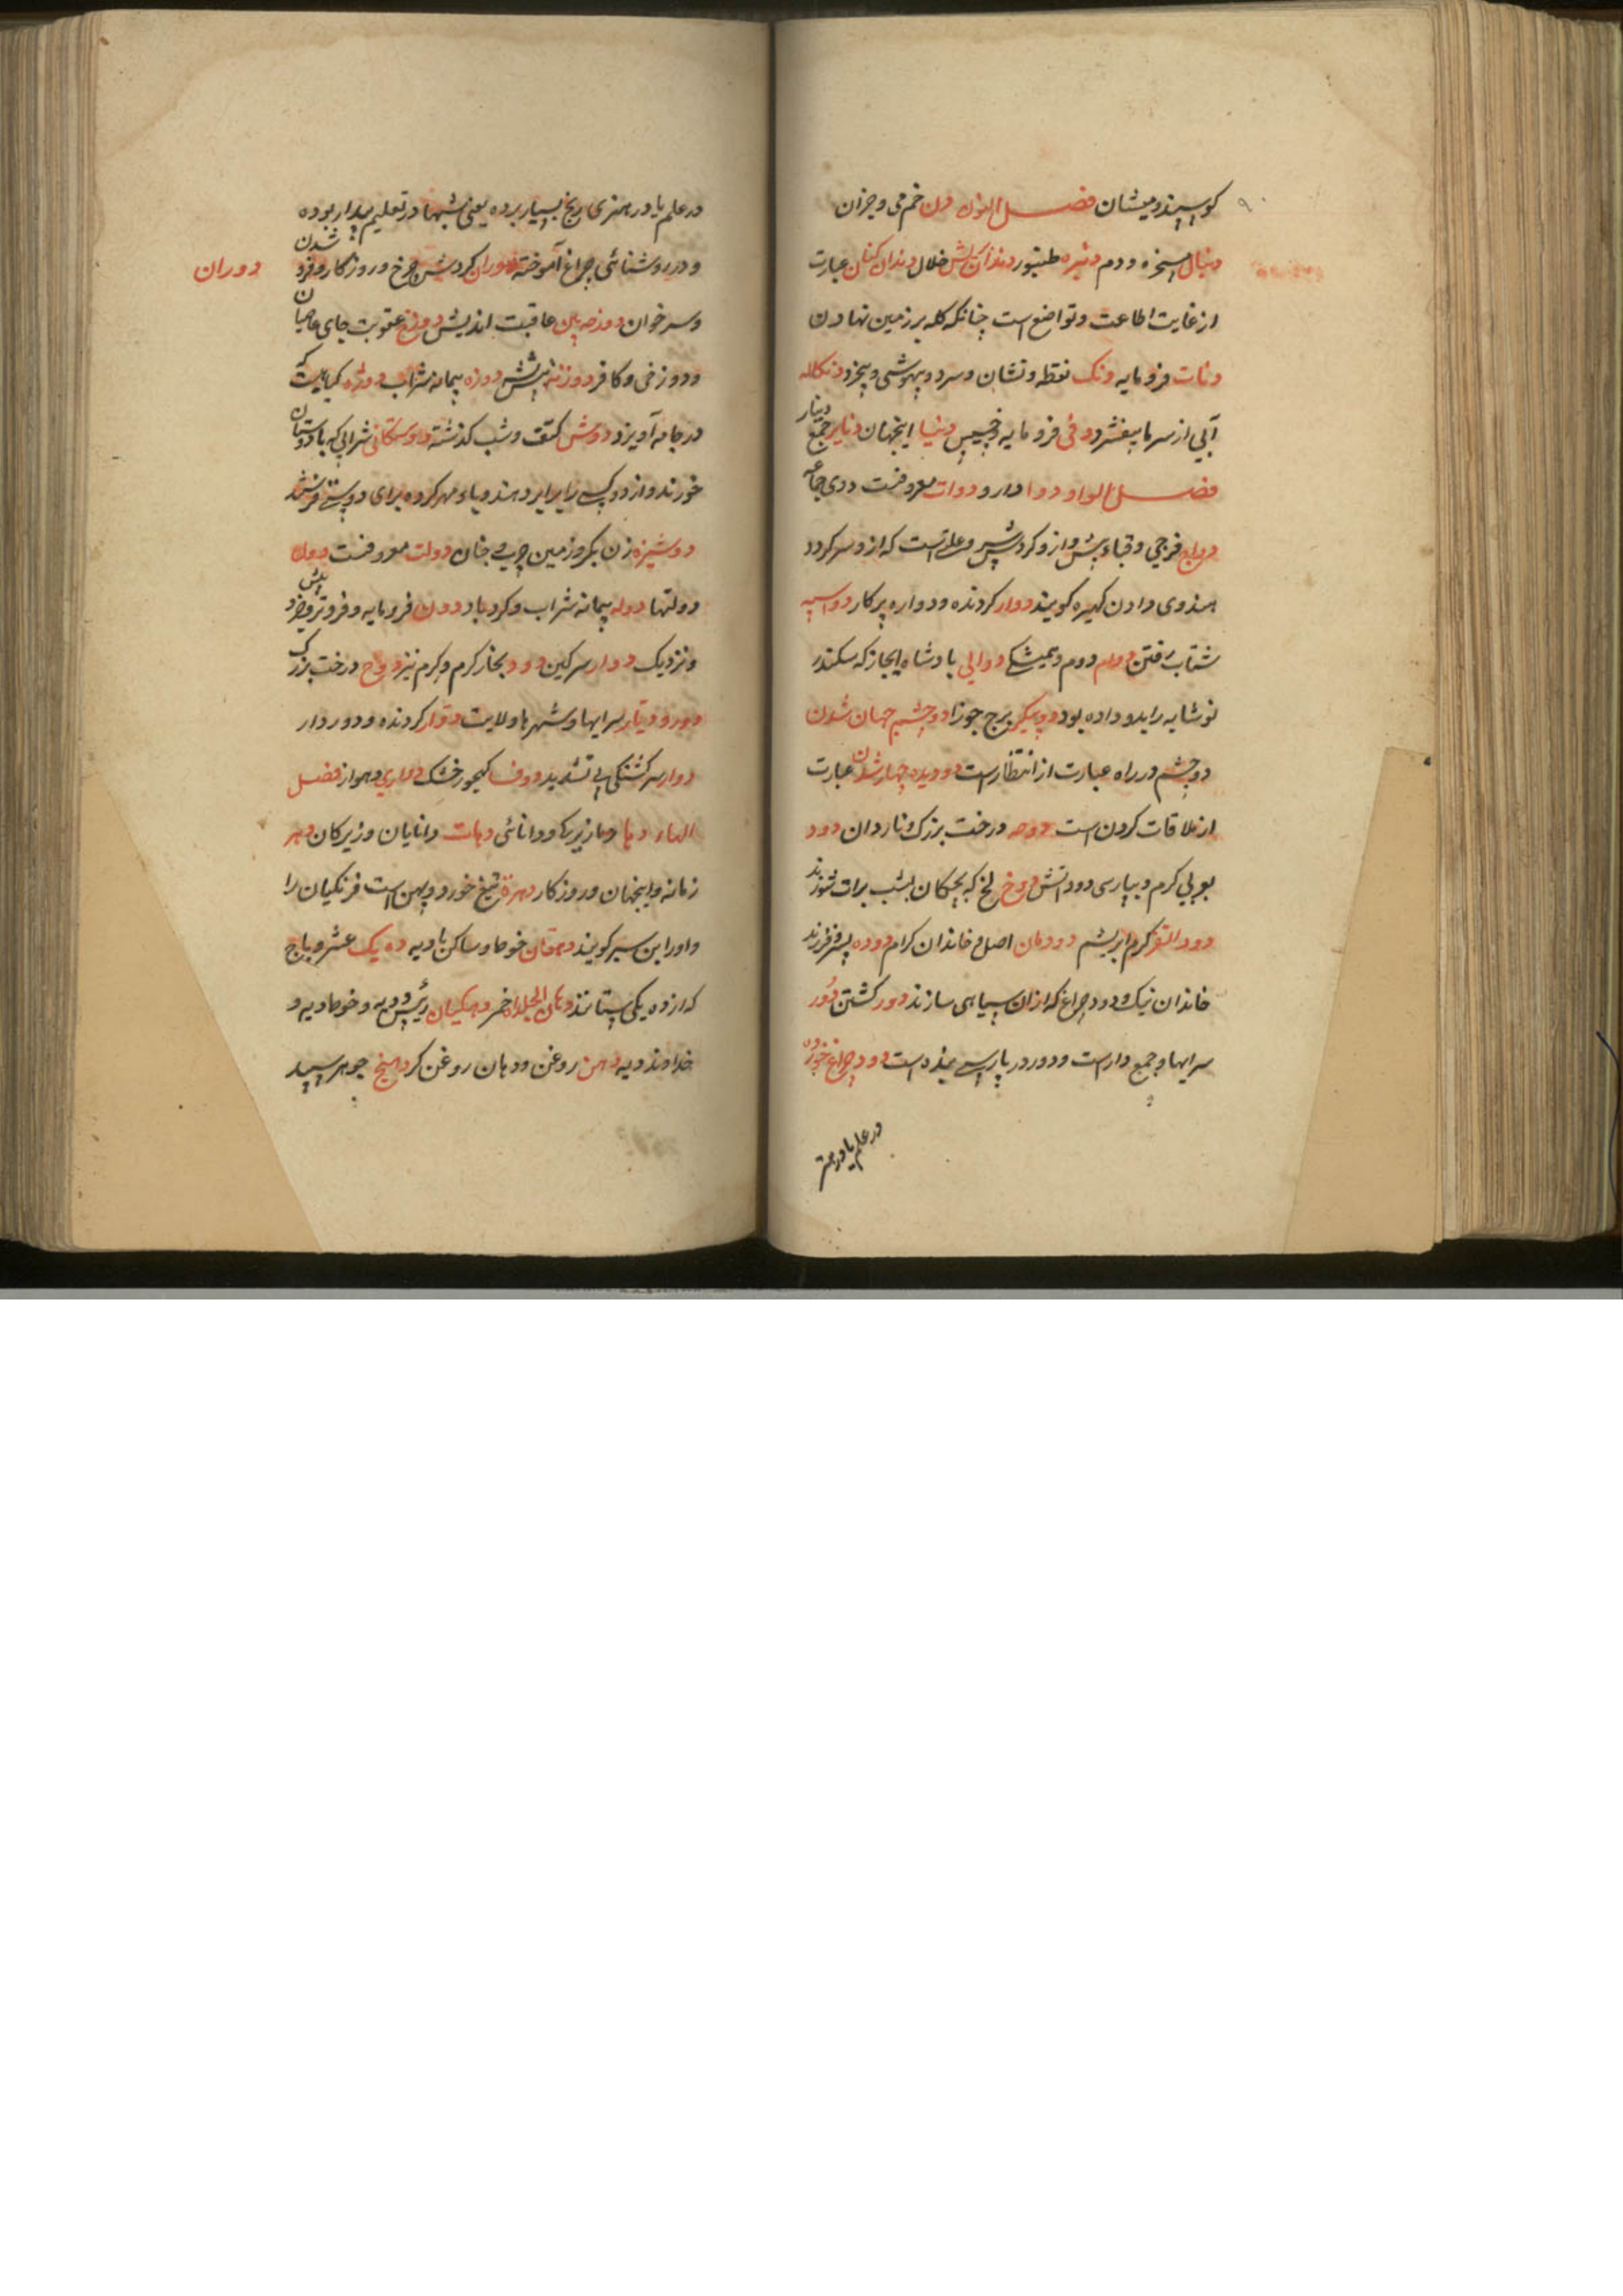 ۹۰
کوسپند و میشان فصل النون دن خم می و جزان
دنبال مسخره و دم دنبره طنبور دندان کاش خلال دندان کنان عبارت
از غایت اطاعت و تواضع است چنانکه کله بر زمین نهادن
دنات فرومایه دنک نقطه و نشان و سرد و بیهوشی و بیخرد دنکلاله
آبی از سرما بیفشرد دنی فرومایه و خسیس دنیا اینجهان دنانیر جمع دینار
فصل الواو دوا دارو دوات معروفست دوی جامه
دواج فرجی و قباء پیش واز و کردش سر و علتیست که ازو سر کردد
هندوی دادن کهیره کویند دوار کردنده و دواره پرکار دواسپه
شتاب رفتن دوام دوم و همیشکی دوالی پادشاه ابخاز که سکندر
نوشابه را بدو داده بود دوپیکر برج جوزا دو چشم جهان شدن
دو چشم در راه عبارت از انتظار است دو دیده چهار شدن عبارت
از ملاقات کردن است دوحه درخت بزرک و ناردان دود
بعربی کرم و بپارسی دود آتش دوخ لخ که بچکان بشب برات سوزند
دود القز کرم ابریشم دودمان اصل و خاندان کرام دوده پسر و فرزند
خاندان نیک و دود چراغ که ازان سیاهی سازند دور کشتن دور
سرایها و جمع دارست و دور در پارسی بعیده است دود چراغ خورده
در علم یا در هنر
در علم یا در هنری رنج بسیار برده یعنی شبها در تعلیم بیدار بوده
و در روشنائی چراغ آموخته دوران کردش چرخ و روزکار و فرد شدن
دوران
و سر خوان دوزخ بین عاقبت اندیش دوزخ عقوبت جای عاصیان
و دوزخی و کافر دوزنه نیش دوزه پیمانه شراب دوژه کیاهیست که
در جامه آویزد دوش کتف و شب کذشته دوستکانی شرابی که با دوستان
خورند و از دو کس را برابر دهند و یا مهر کرده برای دوستی فرستند
دوشیزه زن بکر و زمین چربی جنان دولت معروفست دول
دولتها دوله پیمانه شراب و کردباد دون فرومایه و فروتر و جزد پیش
و نزدیک دوار سرکین دود بخار کرم و کرم نیز دوح درخت بزرک
دور و دیار سرایها و شهرها و ولایت دوار کردنده و دور دار
دوار سرکشتکی بی تشدید دوف کهجور خشک دهاری دهواز فصل
الهاء دها دهاز زیرکی و دانائی دهات دانایان و زیرکان دهر
زمانه و اینجهان و روزکار دهره تیغ خورد و پهن است فرنکیان را
و او را بن سیر کویند دهقان خوطا و ساکن بادیه ده یک عشر و باج
که از ده یکی ستانند دهان الجیلد اخر دهکیان رئیس دیه و خوطا دیه و
خداوند دیه دهن روغن و دهان روغن کر دهنج جوهر سپید